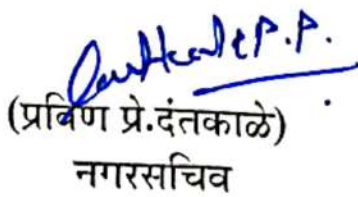 (प्रविण प्रे.दंतकाळे)
नगरसचिव